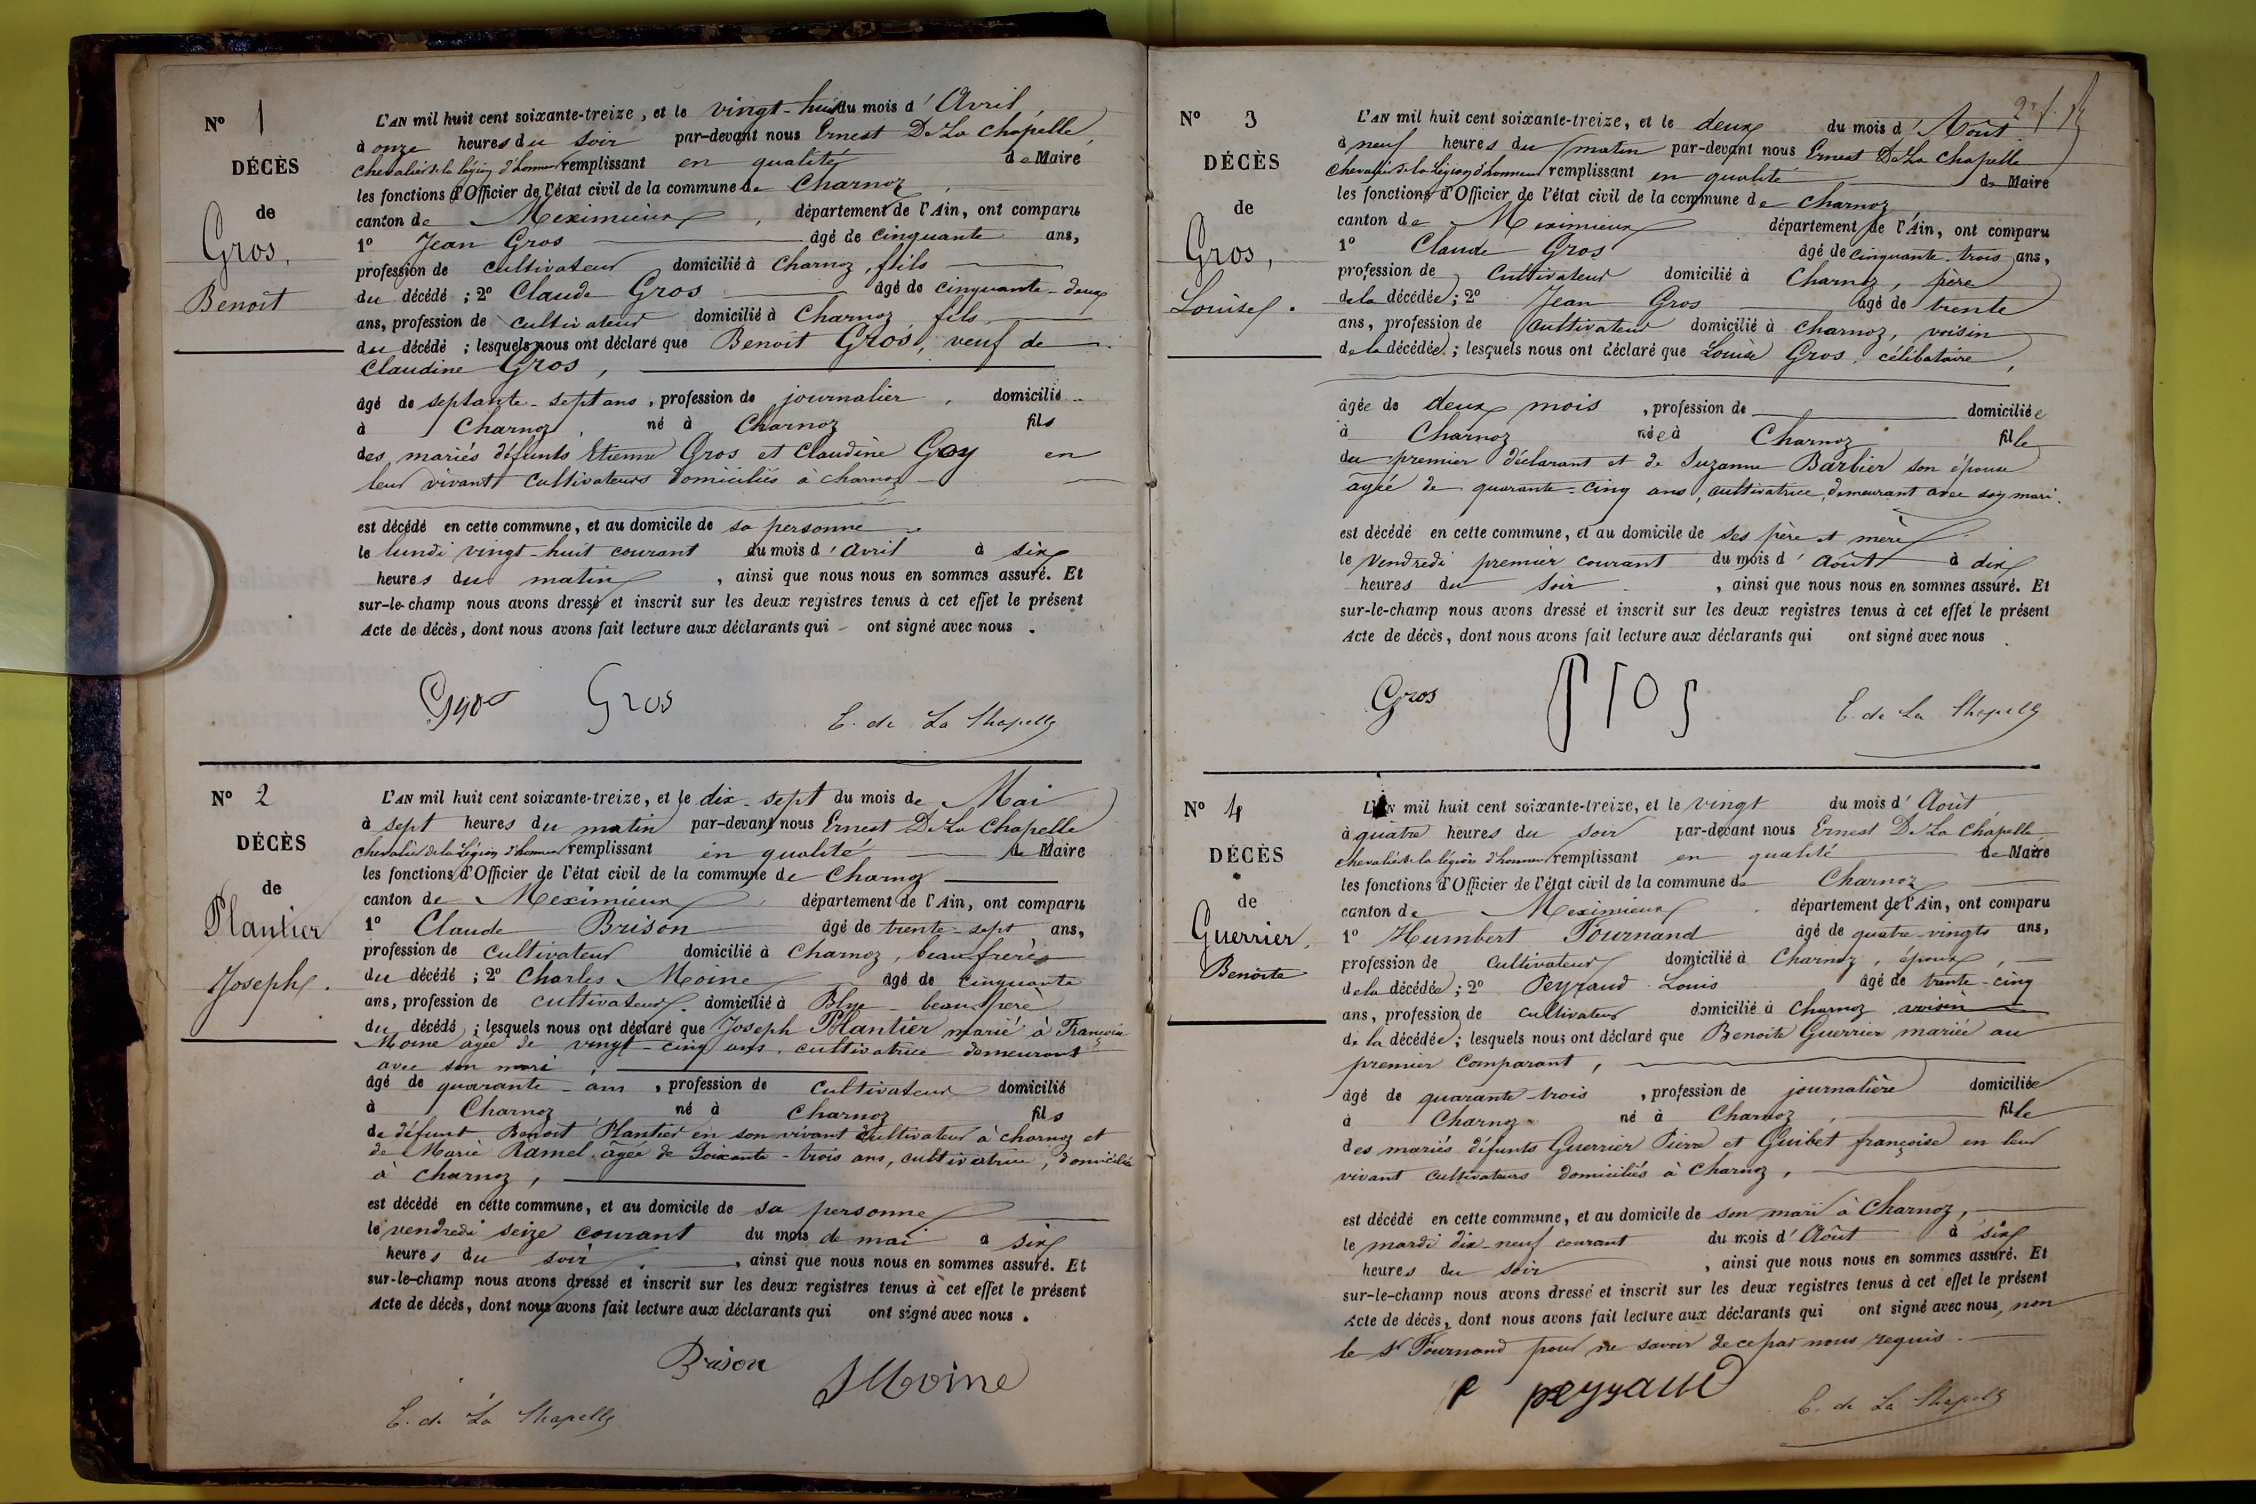 N° 1
DÉCÈS
de
Gros,
Benoit
L'AN mil huit cent soixante-treize, et le vingt-huit du mois d'Avril,
à onze heures du soir par-devant nous Ernest De La Chapelle
chevalier de la légion d'honneur remplissant en qualité de Maire
les fonctions d'Officier de l'état civil de la commune de Charnoz,
canton de Meximieux, département de l'Ain, ont comparu
1° Jean Gros âgé de cinquante ans,
profession de cultivateur domicilié à Charnoz, fils
du décédé ; 2° Claude Gros âgé de cinquante-deux
ans, profession de cultivateur domicilié à Charnoz, fils
du décédé ; lesquels nous ont déclaré que Benoit Gros, veuf de
Claudine Gros,
âgé de septante-sept ans, profession de journalier, domicilié
à Charnoz, né à Charnoz fils
des mariés défunts Etienne Gros et Claudine Goy en
leur vivant cultivateurs domiciliés à charnoz
est décédé en cette commune, et au domicile de sa personne
le lundi vingt-huit courant du mois d'avril à six
heures du matin, ainsi que nous nous en sommes assuré. Et
sur-le-champ nous avons dressé et inscrit sur les deux registres tenus à cet effet le présent
Acte de décès, dont nous avons fait lecture aux déclarants qui ont signé avec nous.
Gros Gros
E. de La Chapelle
N° 2
DÉCÈS
de
Plantier
Joseph.
L'AN mil huit cent soixante-treize, et le dix-sept du mois de Mai
à sept heures du matin par-devant nous Ernest De La Chapelle
chevalier de la Légion d'honneur remplissant en qualité de Maire
les fonctions d'Officier de l'état civil de la commune de Charnoz
canton de Meximieux, département de l'Ain, ont comparu
1° Claude Brison âgé de trente-sept ans,
profession de cultivateur domicilié à Charnoz, beau-frère
du décédé ; 2° Charles Moine âgé de cinquante
ans, profession de cultivateur domicilié à Blye beau-père
du décédé ; lesquels nous ont déclaré que Joseph Plantier marié à Françoise
Moine âgée de vingt-cinq ans, cultivatrice demeurant
avec son mari,
âgé de quarante ans, profession de cultivateur domicilié
à Charnoz, né à Charnoz fils
de défunt Benoit Plantier en son vivant cultivateur à charnoz et
de Marie Ramel âgée de soixante-trois ans, cultivatrice, domiciliée
à Charnoz,
est décédé en cette commune, et au domicile de sa personne
le vendredi seize courant du mois de mai à six
heures du soir, ainsi que nous nous en sommes assuré. Et
sur-le-champ nous avons dressé et inscrit sur les deux registres tenus à cet effet le présent
Acte de décès, dont nous avons fait lecture aux déclarants qui ont signé avec nous.
Brison Moine
E. de La Chapelle
N° 3
DÉCÈS
de
Gros,
Louise.
L'AN mil huit cent soixante-treize, et le deux du mois d'Août
à neuf heures du matin par-devant nous Ernest De La Chapelle
chevalier de la Légion d'honneur remplissant en qualité de Maire
les fonctions d'Officier de l'état civil de la commune de Charnoz
canton de Meximieux département de l'Ain, ont comparu
1° Claude Gros âgé de cinquante-trois ans,
profession de cultivateur domicilié à Charnoz, père
de la décédée ; 2° Jean Gros âgé de trente
ans, profession de cultivateur domicilié à Charnoz, voisin
de la décédée ; lesquels nous ont déclaré que Louise Gros, célibataire,
âgée de deux mois, profession de domiciliée
à Charnoz née à Charnoz fille
du premier déclarant et de Suzanne Barbier son épouse
âgée de quarante-cinq ans, cultivatrice, demeurant avec son mari.
est décédé en cette commune, et au domicile de ses père et mère
le vendredi premier courant du mois d'Août à dix
heures du soir, ainsi que nous nous en sommes assuré. Et
sur-le-champ nous avons dressé et inscrit sur les deux registres tenus à cet effet le présent
Acte de décès, dont nous avons fait lecture aux déclarants qui ont signé avec nous.
Gros Gros
E. de La Chapelle
N° 4
DÉCÈS
de
Guerrier,
Benoite
L'AN mil huit cent soixante-treize, et le vingt du mois d'Août
à quatre heures du soir par-devant nous Ernest De La Chapelle
chevalier de la légion d'honneur remplissant en qualité de Maire
les fonctions d'Officier de l'état civil de la commune de Charnoz
canton de Meximieux, département de l'Ain, ont comparu
1° Humbert Tournand âgé de quatre-vingts ans,
profession de cultivateur domicilié à Charnoz, époux,
de la décédée ; 2° Peyraud Louis âgé de trente-cinq
ans, profession de cultivateur domicilié à Charnoz voisin
de la décédée ; lesquels nous ont déclaré que Benoite Guerrier mariée au
premier comparant,
âgé de quarante trois, profession de journalière domiciliée
à Charnoz né à Charnoz, fille
des mariés défunts Guerrier Pierre et Guibet françoise en leur
vivant cultivateurs domiciliés à Charnoz,
est décédé en cette commune, et au domicile de son mari à Charnoz,
le mardi dix-neuf courant du mois d'Août à six
heures du soir, ainsi que nous nous en sommes assuré. Et
sur-le-champ nous avons dressé et inscrit sur les deux registres tenus à cet effet le présent
Acte de décès, dont nous avons fait lecture aux déclarants qui ont signé avec nous, non
le Sr Tournand pour ne savoir de ce par nous requis.
P peyraud
E. de La Chapelle